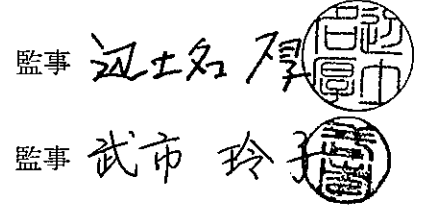 監事 辺土名 厚
監事 武市 玲子